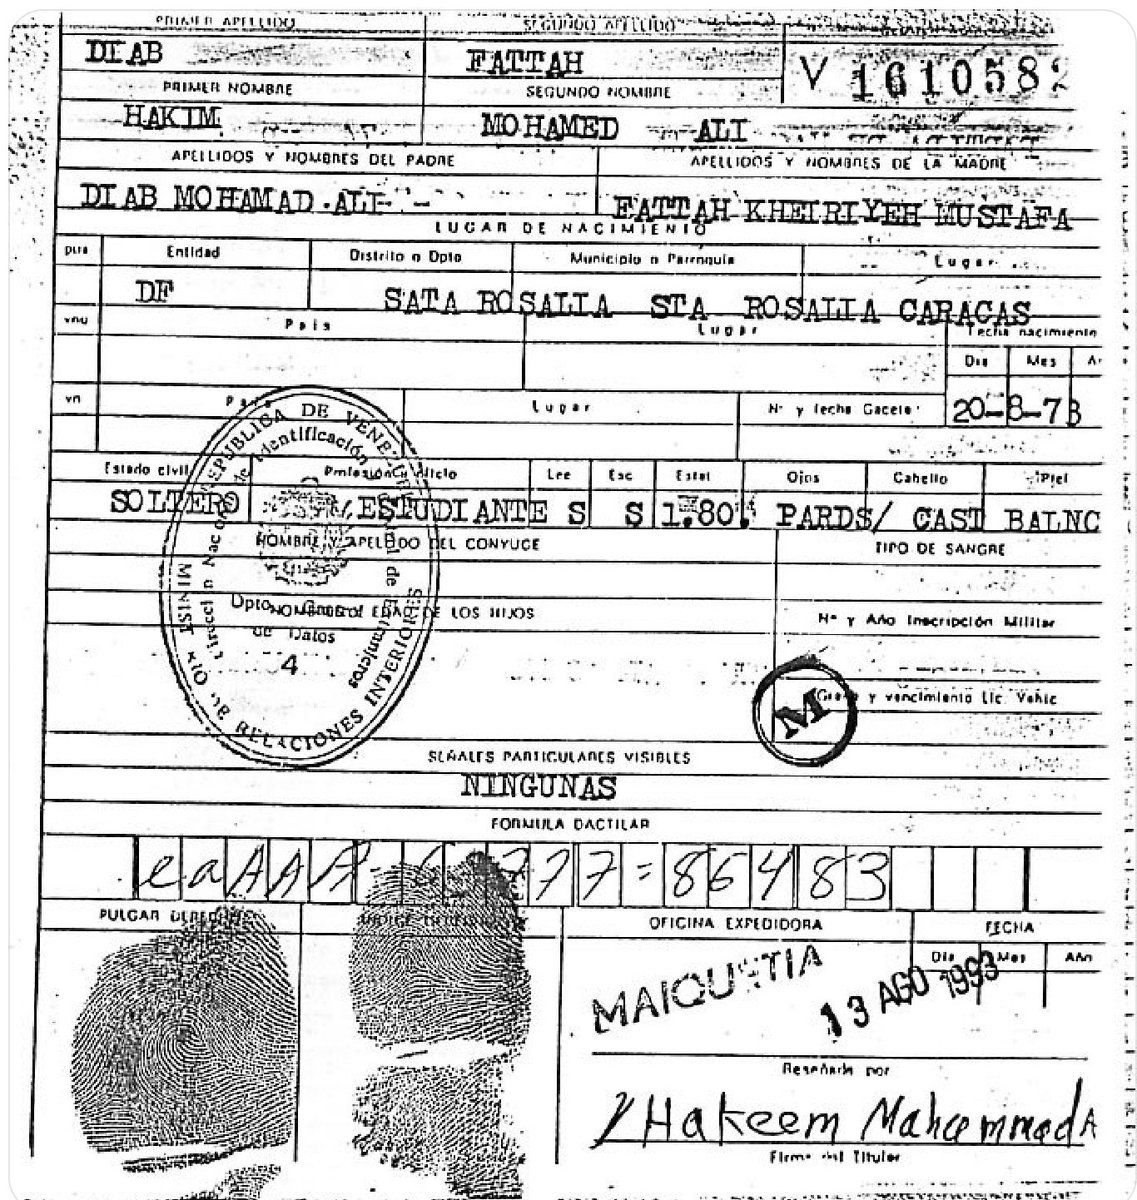 PRIMER APELLIDO SEGUNDO APELLIDO
DIAB FATTAH V 1610582
PRIMER NOMBRE SEGUNDO NOMBRE
HAKIM MOHAMED ALI
APELLIDOS Y NOMBRES DEL PADRE APELLIDOS Y NOMBRES DE LA MADRE
DIAB MOHAMAD ALI FATTAH KHEIRIYEH MUSTAFA
LUGAR DE NACIMIENTO
Entidad Distrito o Dpto Municipio o Parroquia Lugar
DF SATA ROSALIA STA ROSALIA CARACAS
País Lugar Fecha nacimiento
Dia Mes
País Lugar Nº y fecha Gaceta
20-8-73
Estado civil Profesión u oficio Lee Esc Estat Ojos Cabello Piel
SOLTERO ESTUDIANTE S S 1.80 PARDS/ CAST BALNC
NOMBRE Y APELLIDO DEL CONYUGE TIPO DE SANGRE
EDAD DE LOS HIJOS Nº y Año Inscripción Militar
REPUBLICA DE VENEZUELA
MINISTERIO DE RELACIONES INTERIORES
Dirección Nacional de Identificación
de Extranjeros
Dpto. Control
de Datos
4
M
Grado y vencimiento Lic. Vehic
SEÑALES PARTICULARES VISIBLES
NINGUNAS
FORMULA DACTILAR
777=86483
PULGAR DERECHO OFICINA EXPEDIDORA FECHA
Día Mes Año
MAIQUETIA 13 AGO 1993
Reseñado por
Hakeem Mahammad A
Firma del Titular